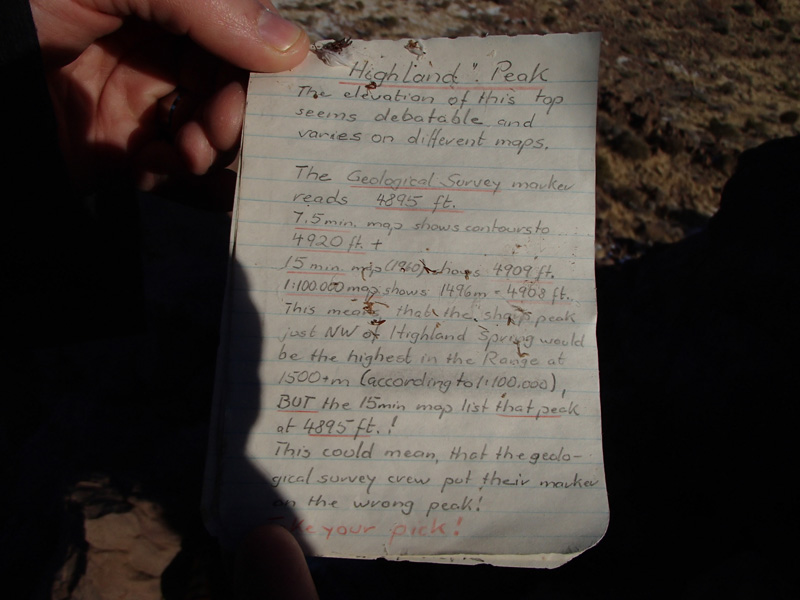 "Highland" Peak
The elevation of this top
seems debatable and
varies on different maps.
The Geological Survey marker
reads 4895 ft.
7.5 min. map shows contours to
4920 ft. +
15 min. map (1960) shows 4909 ft.
1:100.000 map shows 1496m - 4908 ft.
This means, that the sharp peak
just NW of Highland Spring would
be the highest in the Range at
1500+m (according to 1:100.000),
BUT the 15min map list that peak
at 4895 ft.!
This could mean, that the geolo-
gical survey crew put their marker
on the wrong peak!
Take your pick!